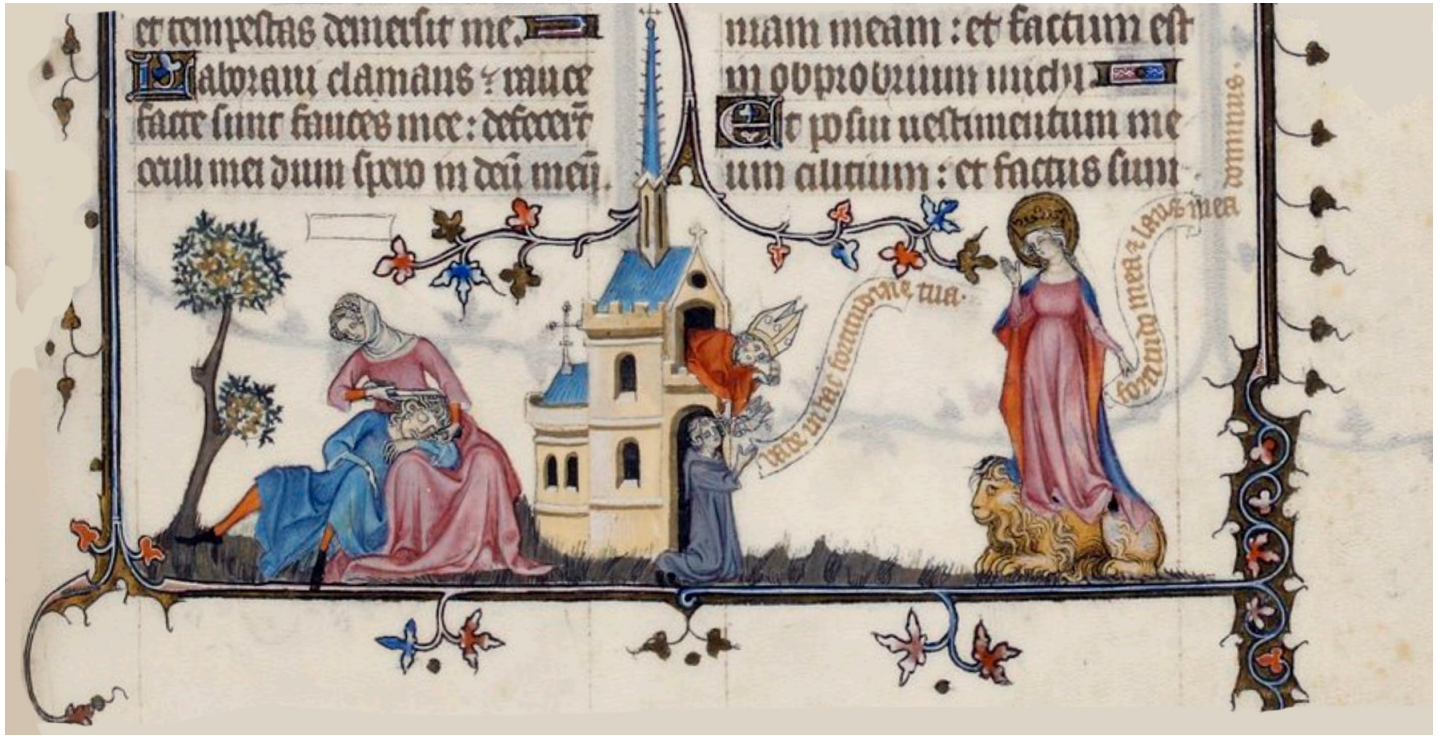 et tempestas demersit me.
Laboraui clamans ⁊ rauce
facte sunt fauces mee: defecer̄t
oculi mei dum spero in deū meū.
mam meam: et factum est
in obprobrium michi.
Et posui uestimentum me
um cilicium: et factus sum
vade in hac fortitudine tua.
fortitudo mea ⁊ laus mea dominus.